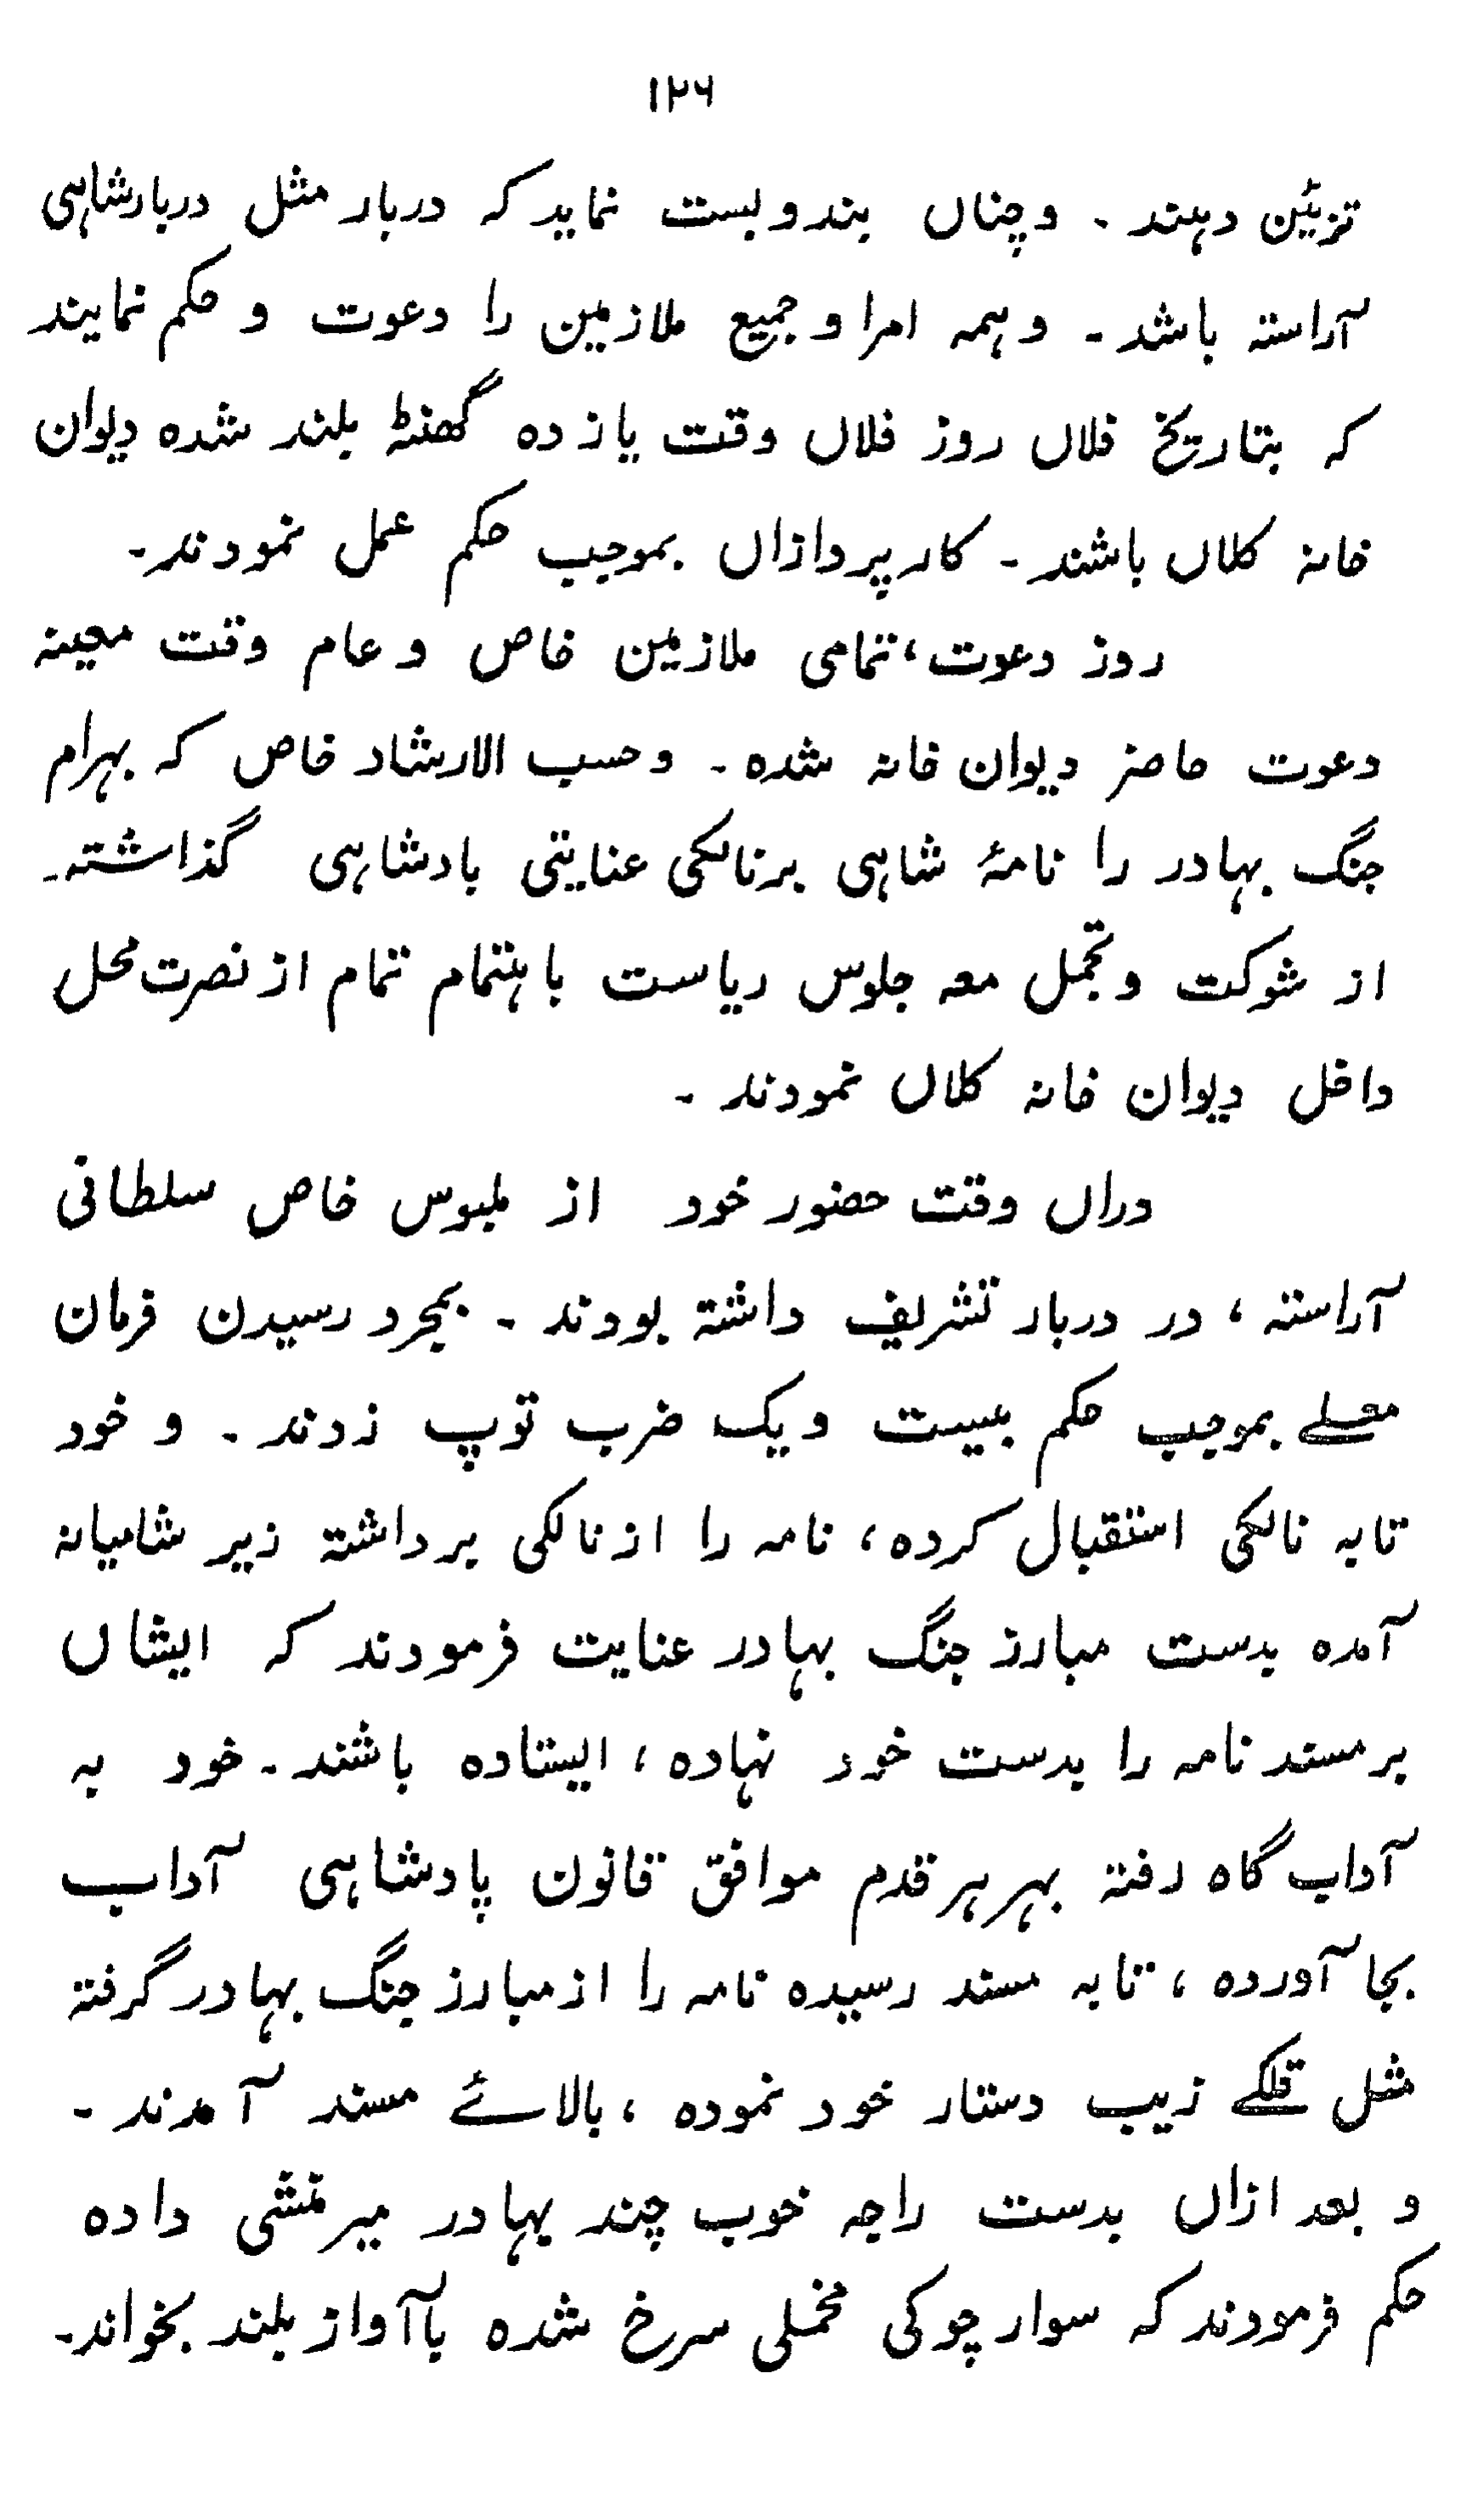 ۱۲۶
تزئین دہند۔ وچناں بندوبست نماید کہ دربار مثل دربارشاہی
آراستہ باشد۔ وہمہ امرا و جمیع ملازمین را دعوت و حکم نمایند
کہ بتاریخ فلاں روز فلاں وقت یازدہ گھنٹہ بلند شدہ دیوان
خانہ کلاں باشند۔ کارپردازاں بموجب حکم عمل نمودند۔
روز دعوت، تمامی ملازمین خاص و عام وقت معینہ
دعوت حاضر دیوان خانہ شدہ۔ وحسب الارشاد خاص کہ بہرام
جنگ بہادر را نامۂ شاہی برنالکی عنایتی بادشاہی گذاشتہ۔
از شوکت وتجمل معہ جلوس ریاست باہتمام تمام از نصرت محل
داخل دیوان خانہ کلاں نمودند۔
دراں وقت حضور خود از ملبوس خاص سلطانی
آراستہ، در دربار تشریف داشتہ بودند۔ بمجرد رسیدن فرمان
معلے بموجب حکم بیست ویک ضرب توپ زدند۔ و خود
تابہ نالکی استقبال کردہ، نامہ را از نالکی برداشتہ زیر شامیانہ
آمدہ بدست مبارز جنگ بہادر عنایت فرمودند کہ ایشاں
بر مسند نامہ را بدست خود نہادہ، ایستادہ باشند۔ خود بہ
آداب گاہ رفتہ بہر ہر قدم موافق قانون پادشاہی آداب
بجا آوردہ، تابہ مسند رسیدہ نامہ را از مبارز جنگ بہادر گرفتہ
مثل تکلے زیب دستار خود نمودہ، بالائے مسند آمدند۔
و بعد ازاں بدست راجہ خوب چند بہادر میر منشی دادہ
حکم فرمودند کہ سوار چوکی مخملی سرخ شدہ باآواز بلند بخواند۔